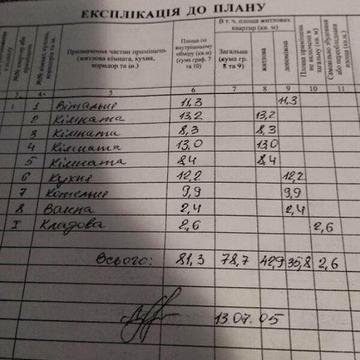 ЕКСПЛІКАЦІЯ ДО ПЛАНУ
Призначення частин приміщень (житлова кімната, кухня, коридор та ін.)
Площа по внутрішньому обміру (кв.м) (сума граф. 7 та 10)
В т. ч. площа житлових квартир (кв. м)
Загальна (сума гр. 8 та 9)
житлова
допоміжна
3 4 5 6 7 8 9 10 11
1 1 Вітальня 11,3 11,3
2 Кімната 13,2 13,2
3 Кімната 8,3 8,3
4 Кімната 13,0 13,0
5 Кімната 8,4 8,4
6 Кухня 12,2 12,2
7 Котельня 9,9 9,9
8 Ванна 2,4 2,4
I Кладова 2,6 2,6
Всього: 81,3 78,7 42,9 35,8 2,6
13.07.05